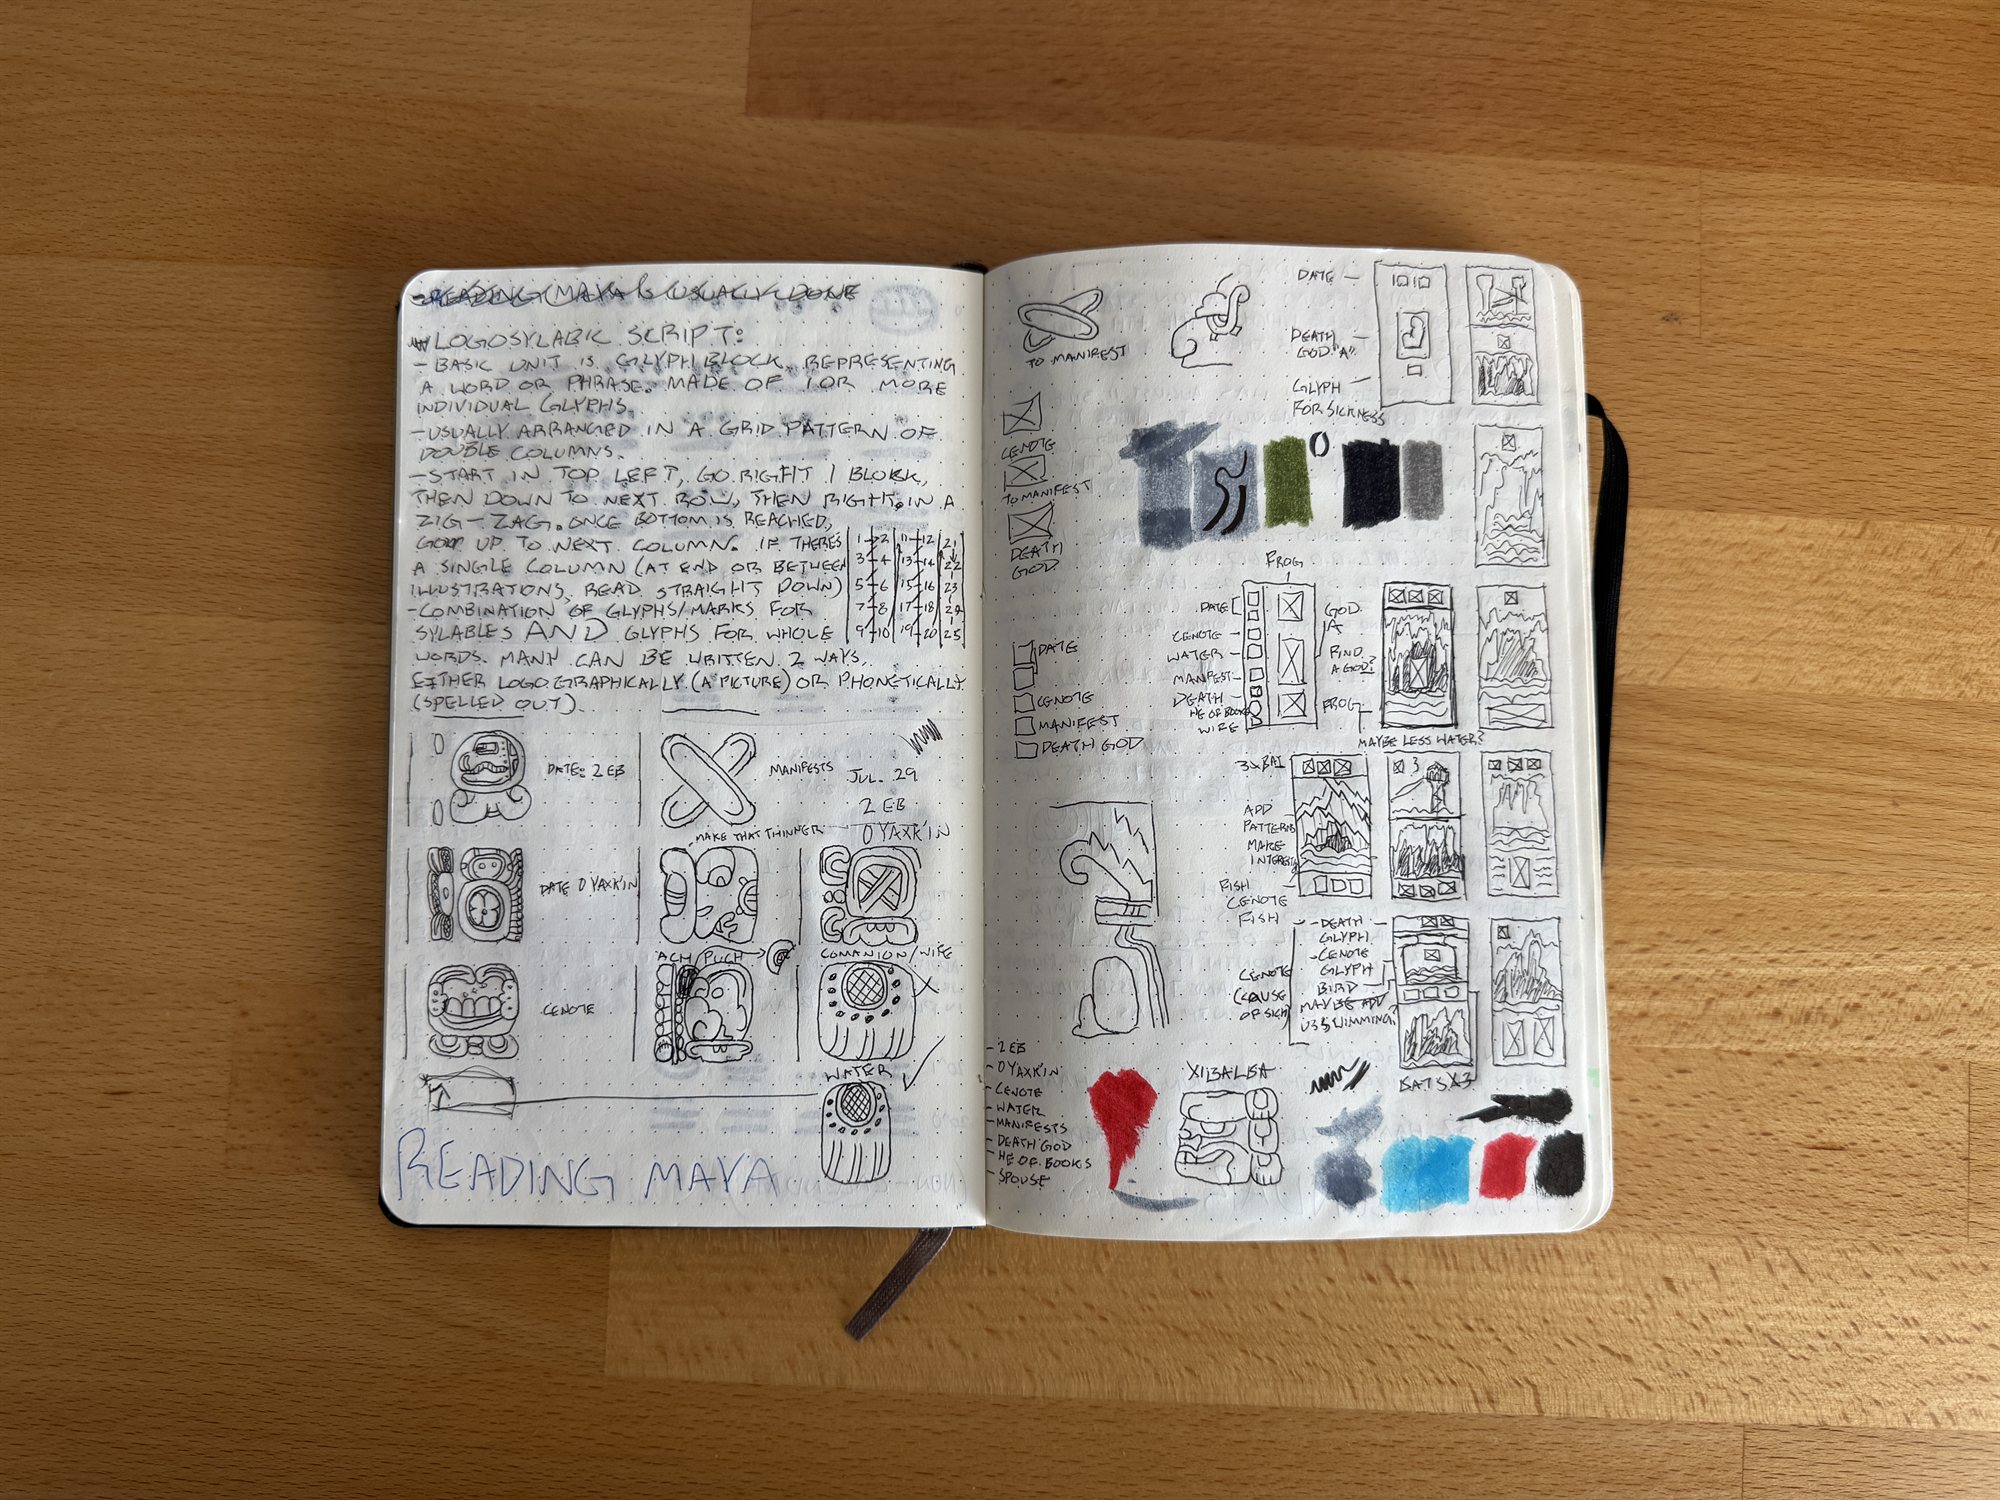 -READING MAYA IS USUALLY DONE
LOGOSYLABIC SCRIPT:
- BASIC UNIT IS GLYPH BLOCK, REPRESENTING
A WORD OR PHRASE. MADE OF 1 OR MORE
INDIVIDUAL GLYPHS.
- USUALLY ARRANGED IN A GRID PATTERN OF
DOUBLE COLUMNS.
- START IN TOP LEFT, GO RIGHT 1 BLOCK,
THEN DOWN TO NEXT ROW, THEN RIGHT, IN A
ZIG-ZAG. ONCE BOTTOM IS REACHED,
UP TO NEXT COLUMN. IF THERE'S
A SINGLE COLUMN (AT END OR BETWEEN
ILLUSTRATIONS, READ STRAIGHT DOWN)
- COMBINATION OF GLYPHS/MARKS FOR
SYLABLES AND GLYPHS FOR WHOLE
WORDS. MANY CAN BE WRITTEN 2 WAYS,
EITHER LOGOGRAPHICALLY (A PICTURE) OR PHONETICALLY
(SPELLED OUT)
1 2 11 12 21
3 4 13 14 22
5 6 15 16 23
7 8 17 18 24
9 10 19 20 25
DATE: 2 EB
MANIFESTS
JUL. 29
2 EB
0 YAXK'IN
- MAKE THAT THINNER
DATE 0 YAXK'IN
AH PUCH
COMANION/WIFE
CENOTE
WATER
READING MAYA
TO MANIFEST
DATE
DEATH
GOD "A"
GLYPH
FOR SICKNESS
CENOTE
TO MANIFEST
DEATH
GOD
FROG
DATE
CENOTE
WATER
MANIFEST
DEATH
HE OF BOOKS
WIFE
GOD
A
FIND
A GOD?
FROG
MAYBE LESS WATER?
DATE
CENOTE
MANIFEST
DEATH GOD
3X BAT
3
ADD
PATTERNS
MAKE
INTERESTING
FISH
CENOTE
FISH
- DEATH
GLYPH
- CENOTE
GLYPH
BIRD
MAYBE ADD
US SWIMMING?
CENOTE
(CAUSE
OF SICK)
BATS X3
- 2 EB
- 0 YAXK'IN
- CENOTE
- WATER
- MANIFESTS
- DEATH GOD
- HE OF BOOKS
- SPOUSE
XIBALBA